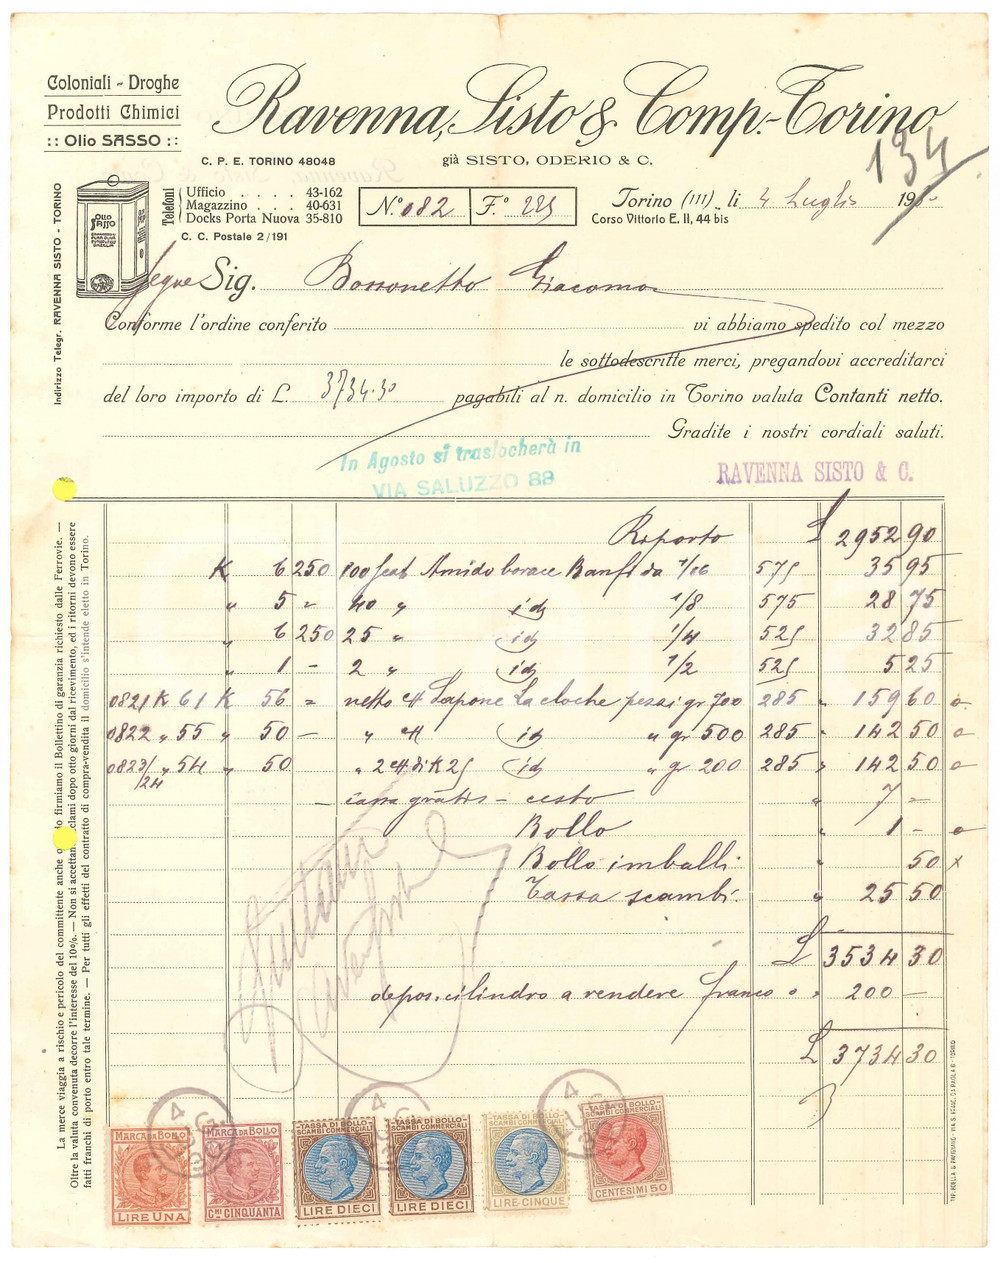 Coloniali - Droghe
Prodotti Chimici
:: Olio SASSO ::
Ravenna, Sisto & Comp. - Torino
134
C. P. E. TORINO 48048
già SISTO, ODERIO & C.
Indirizzo Telegr. RAVENNA SISTO - TORINO
OLIO SASSO
Telefoni
Ufficio . . . . 43-162
Magazzino . . . 40-631
Docks Porta Nuova 35-810
C. C. Postale 2/191
N.° 082 F.° 225
Torino (III) li 4 Luglio 19
Corso Vittorio E. II, 44 bis
Segue Sig. Bossonetto Giacomo
Conforme l'ordine conferito vi abbiamo spedito col mezzo
le sottodescritte merci, pregandovi accreditarci
del loro importo di L. 3734.30 pagabili al n. domicilio in Torino valuta Contanti netto.
Gradite i nostri cordiali saluti.
In Agosto si traslocherà in
VIA SALUZZO 88
RAVENNA SISTO & C.
Riporto L 2952 90
K 6 250 100 scat Amido borace Banfi da 1/16 575 35 95
" 5 = 40 " id 1/8 575 28 75
" 6 250 25 " id 1/4 525 32 85
" 1 - 2 " id 1/2 525 5 25
0821 K 61 K 56 = netto Sapone La cloche pezzi gr 700 285 " 159 60 o
0822 " 55 " 50 - " id " gr 500 285 " 142 50 o
0823/24 " 54 " 50 " 2 di K 25 id " gr 200 285 " 142 50 o
- cassa gratis - cesto " 7 =
Bollo " 1 - o
Bollo imballi 50 x
Tassa scambi. " 25 50
L 3534 30
depos. cilindro a rendere franco " 200 -
L 3734 30
La merce viaggia a rischio e pericolo del committente anche firmiamo il Bollettino di garanzia richiesto dalle Ferrovie. —
Oltre la valuta convenuta decorre l'interesse del 10%. — Non si accettano reclami dopo otto giorni dal ricevimento, ed i ritorni devono essere
fatti franchi di porto entro tale termine. — Per tutti gli effetti del contratto di compra-vendita il domicilio s'intende eletto in Torino.
4 LUG 30
4 LUG 30
4 LUG 30
MARCA DA BOLLO
LIRE UNA
MARCA DA BOLLO
C.MI CINQUANTA
TASSA DI BOLLO
SCAMBI COMMERCIALI
LIRE DIECI
TASSA DI BOLLO
SCAMBI COMMERCIALI
LIRE DIECI
TASSA DI BOLLO
SCAMBI COMMERCIALI
LIRE CINQUE
TASSA DI BOLLO
SCAMBI COMMERCIALI
CENTESIMI 50